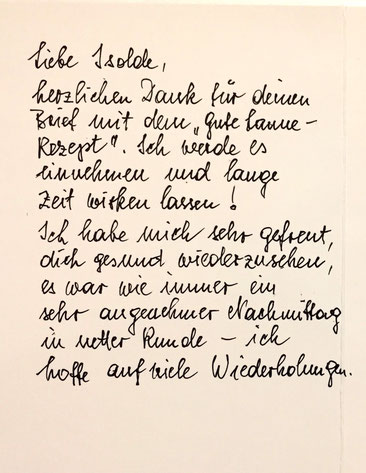 Liebe Isolde,
herzlichen Dank für deinen
Brief mit dem „Gute Laune-
Rezept“. Ich werde es
einnehmen und lange
Zeit wirken lassen!
Ich habe mich sehr gefreut,
dich gesund wiederzusehen,
es war wie immer ein
sehr angenehmer Nachmittag
in netter Runde – ich
hoffe auf viele Wiederholungen.